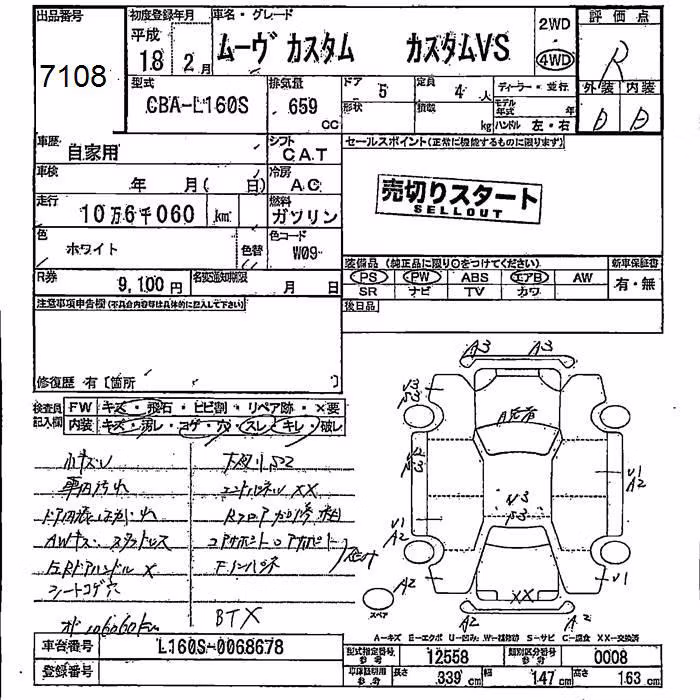 出品番号 初度登録年月 車名・グレード 2WD 評価点
7108 平成 18 2月 ムーヴ カスタム カスタムVS 4WD R
型式 排気量 ドア 5 定員 4人 ディーラー・並行 外装 内装
CBA-L160S 659 cc 形状 積載 kg モデル年式 年 D D
ハンドル 左・右
車歴 自家用 シフト CAT セールスポイント(正常に機能するものに限ります)
車検 年 月( 日) 冷房 AC 売切りスタート
SELLOUT
走行 10万6千060 km 燃料 ガソリン
色 ホワイト 色替 色コード W09 装備品(純正品に限り○をつけてください) 新車保証書
R券 9,100円 名変通知期限 月 日 PS PW ABS エアB AW 有・無
SR ナビ TV カワ
注意事項申告欄(不具合内容等は具体的に記入して下さい) 後日品
修復歴 有〔箇所 〕
検査員記入欄 FW キズ・飛石・ヒビ割・リペア跡・×要
内装 キズ・汚レ・コゲ・穴・スレ・キレ・破レ
小キズ凹
車内汚れ
AWキズ スタッドレス
シートコゲ穴
106060km
XX
BTX
A3 A3
A2
V3
V1
A2
V1
V1
XX
A2 A2 A2
スペア
A-キズ E-エクボ U-凹み W-補修跡 S-サビ C-腐食 XX-交換済
車台番号 L160S-0068678 型式指定番号 参考 12558 類別区分番号 参考 0008
登録番号 車庫証明用 参考 長さ 339 cm 幅 147 cm 高さ 163 cm